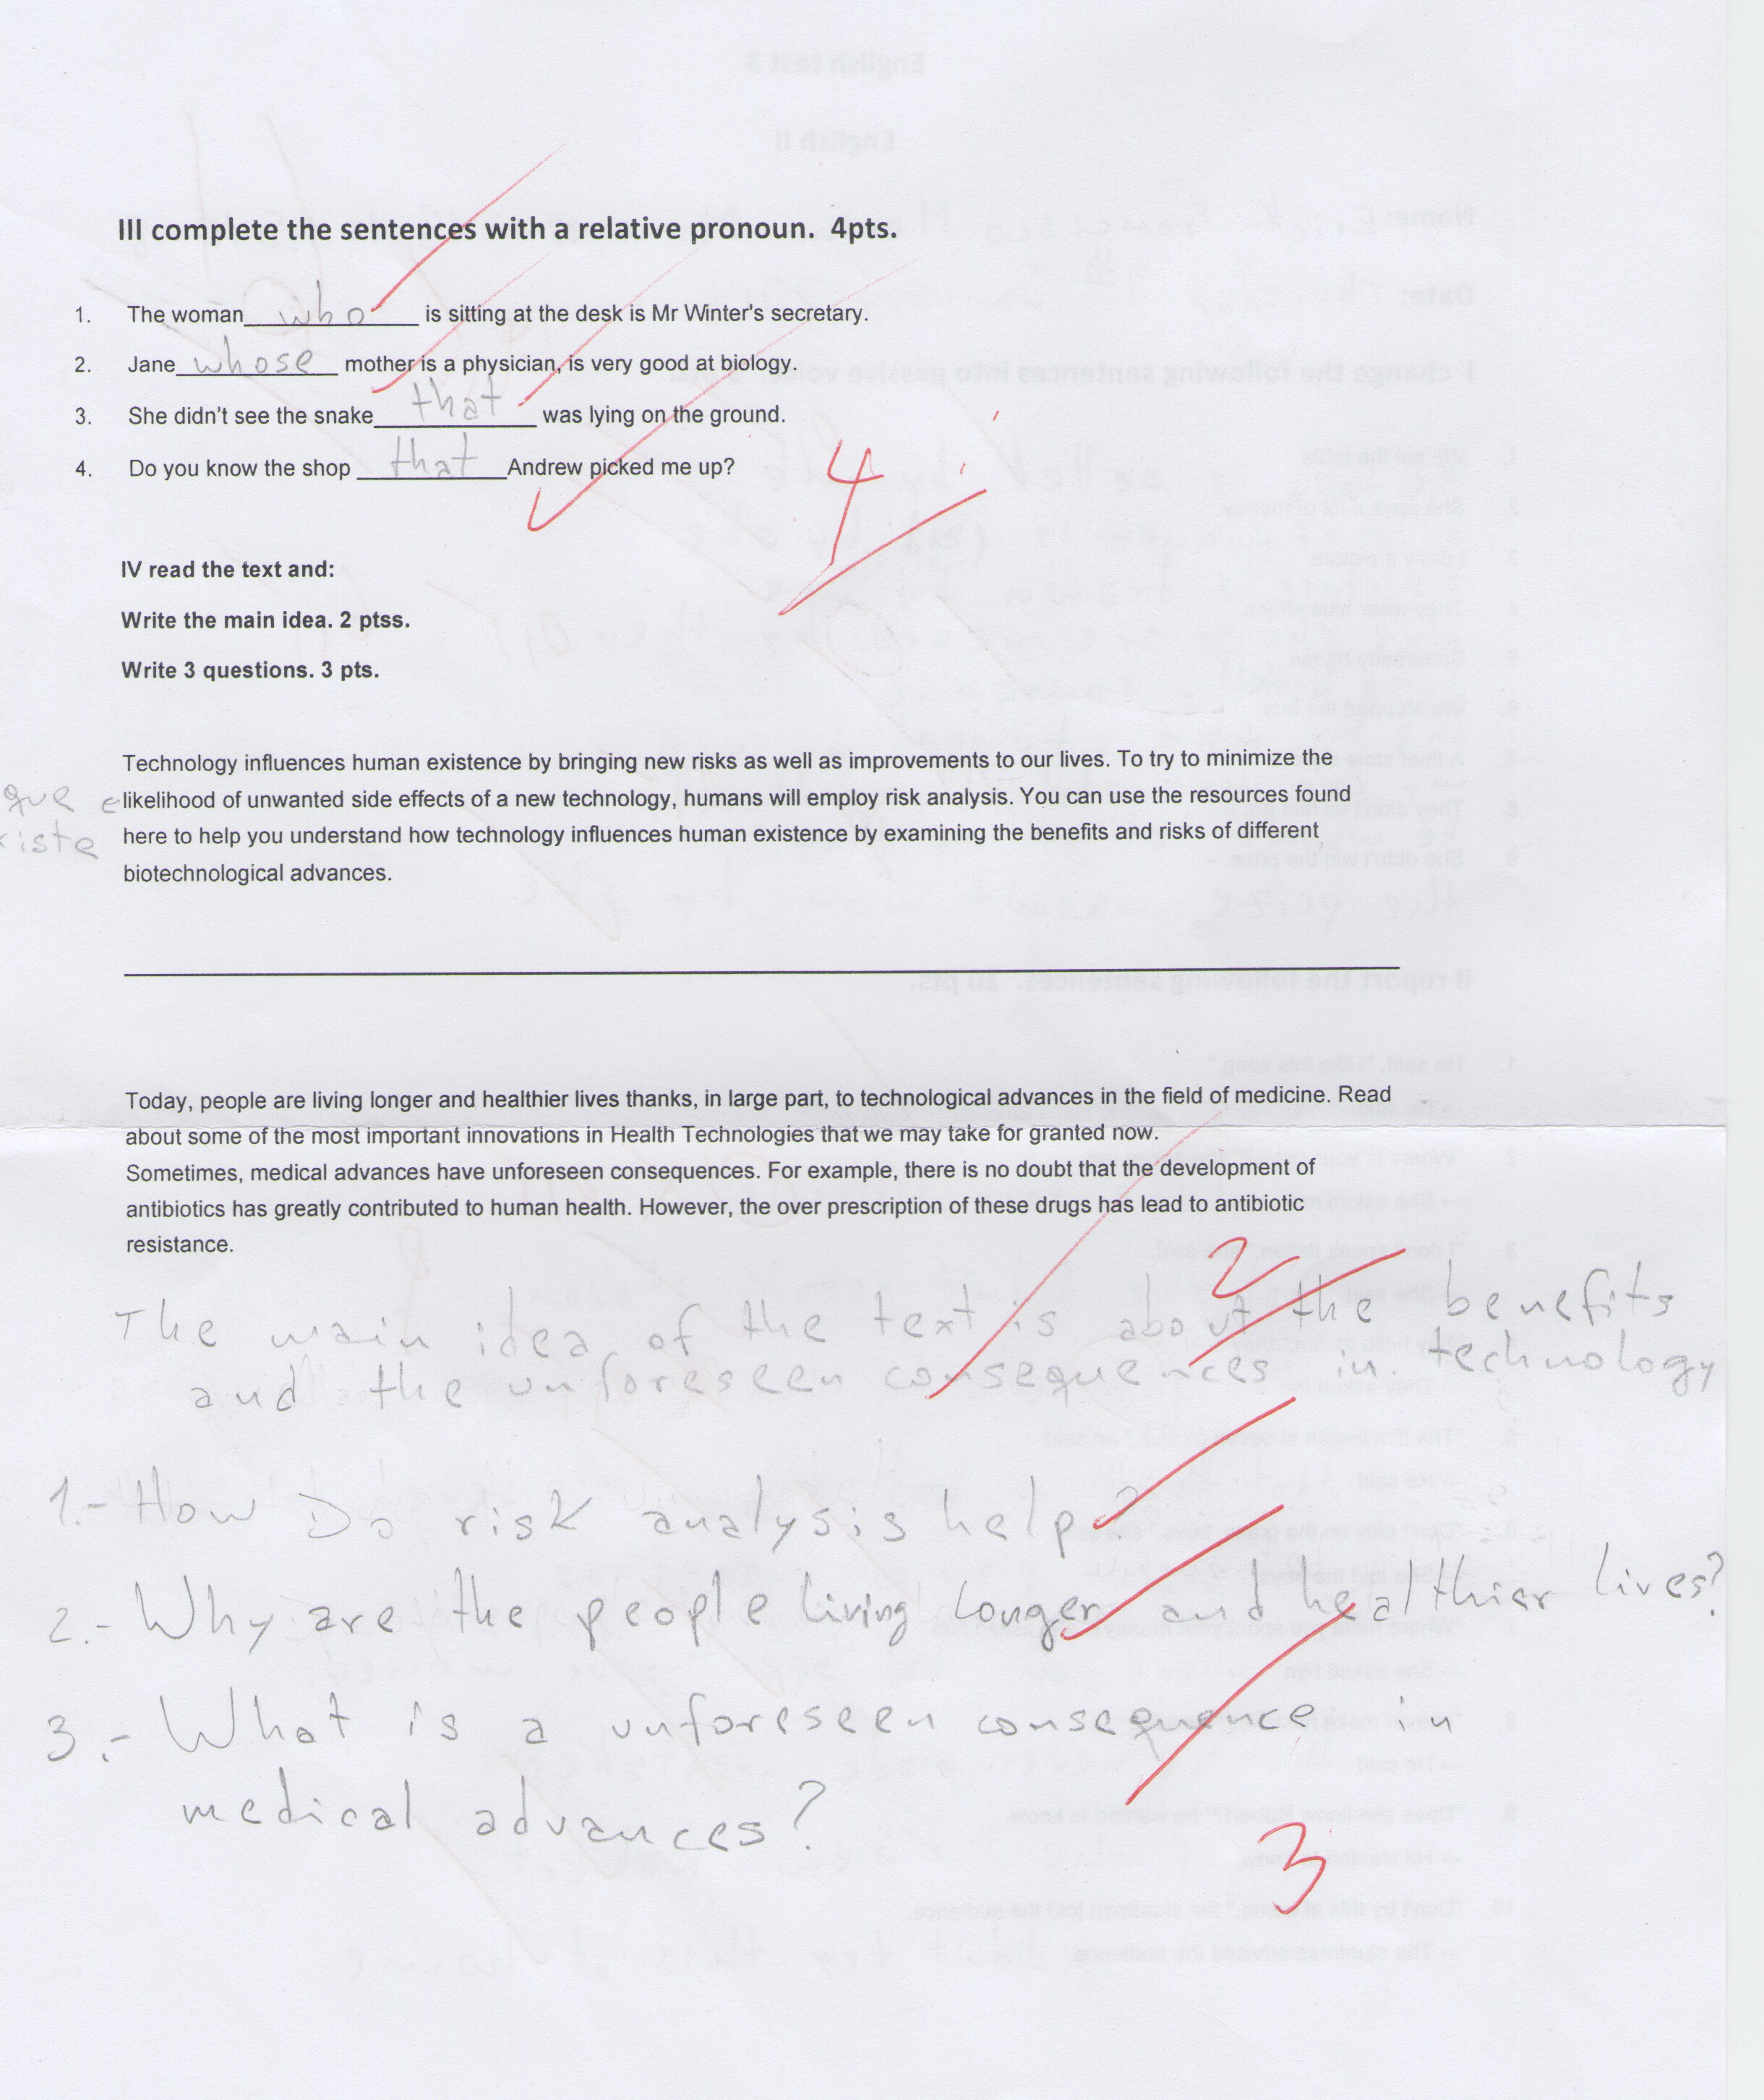 III complete the sentences with a relative pronoun. 4pts.
1. The woman who is sitting at the desk is Mr Winter's secretary.
2. Jane whose mother is a physician, is very good at biology.
3. She didn't see the snake that was lying on the ground.
4. Do you know the shop that Andrew picked me up?
4
IV read the text and:
Write the main idea. 2 ptss.
Write 3 questions. 3 pts.
Technology influences human existence by bringing new risks as well as improvements to our lives. To try to minimize the
likelihood of unwanted side effects of a new technology, humans will employ risk analysis. You can use the resources found
here to help you understand how technology influences human existence by examining the benefits and risks of different
biotechnological advances.
Today, people are living longer and healthier lives thanks, in large part, to technological advances in the field of medicine. Read
about some of the most important innovations in Health Technologies that we may take for granted now.
Sometimes, medical advances have unforeseen consequences. For example, there is no doubt that the development of
antibiotics has greatly contributed to human health. However, the over prescription of these drugs has lead to antibiotic
resistance.
2
The main idea of the text is about the benefits
and the unforeseen consequences in technology
1.- How Do risk analysis help?
2.- Why are the people living longer and healthier lives?
3.- What is a unforeseen consequence in
medical advances?
3